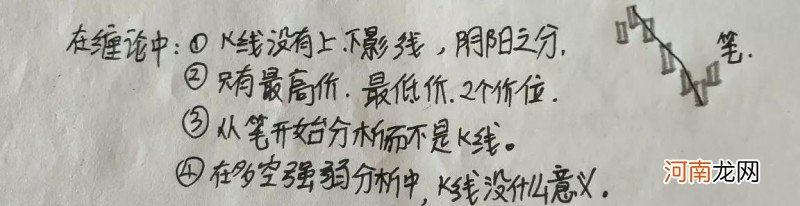 在缠论中：① K线没有上.下影线，阴阳之分.
② 只有最高价.最低价.2个价位.
③ 从笔开始分析而不是K线。
④ 在多空强弱分析中，K线没什么意义.
笔.
河南龙网